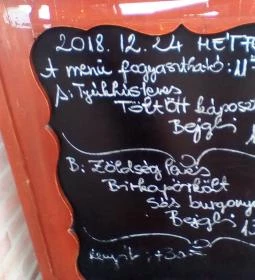 2018. 12. 24 HÉTF
A menü fogyasztható: 11
A: Tyúkhúsleves
Töltött káposz
Bejgli
B: Zöldség leves
Birkapörkölt
Sós burgonya
Bejgli